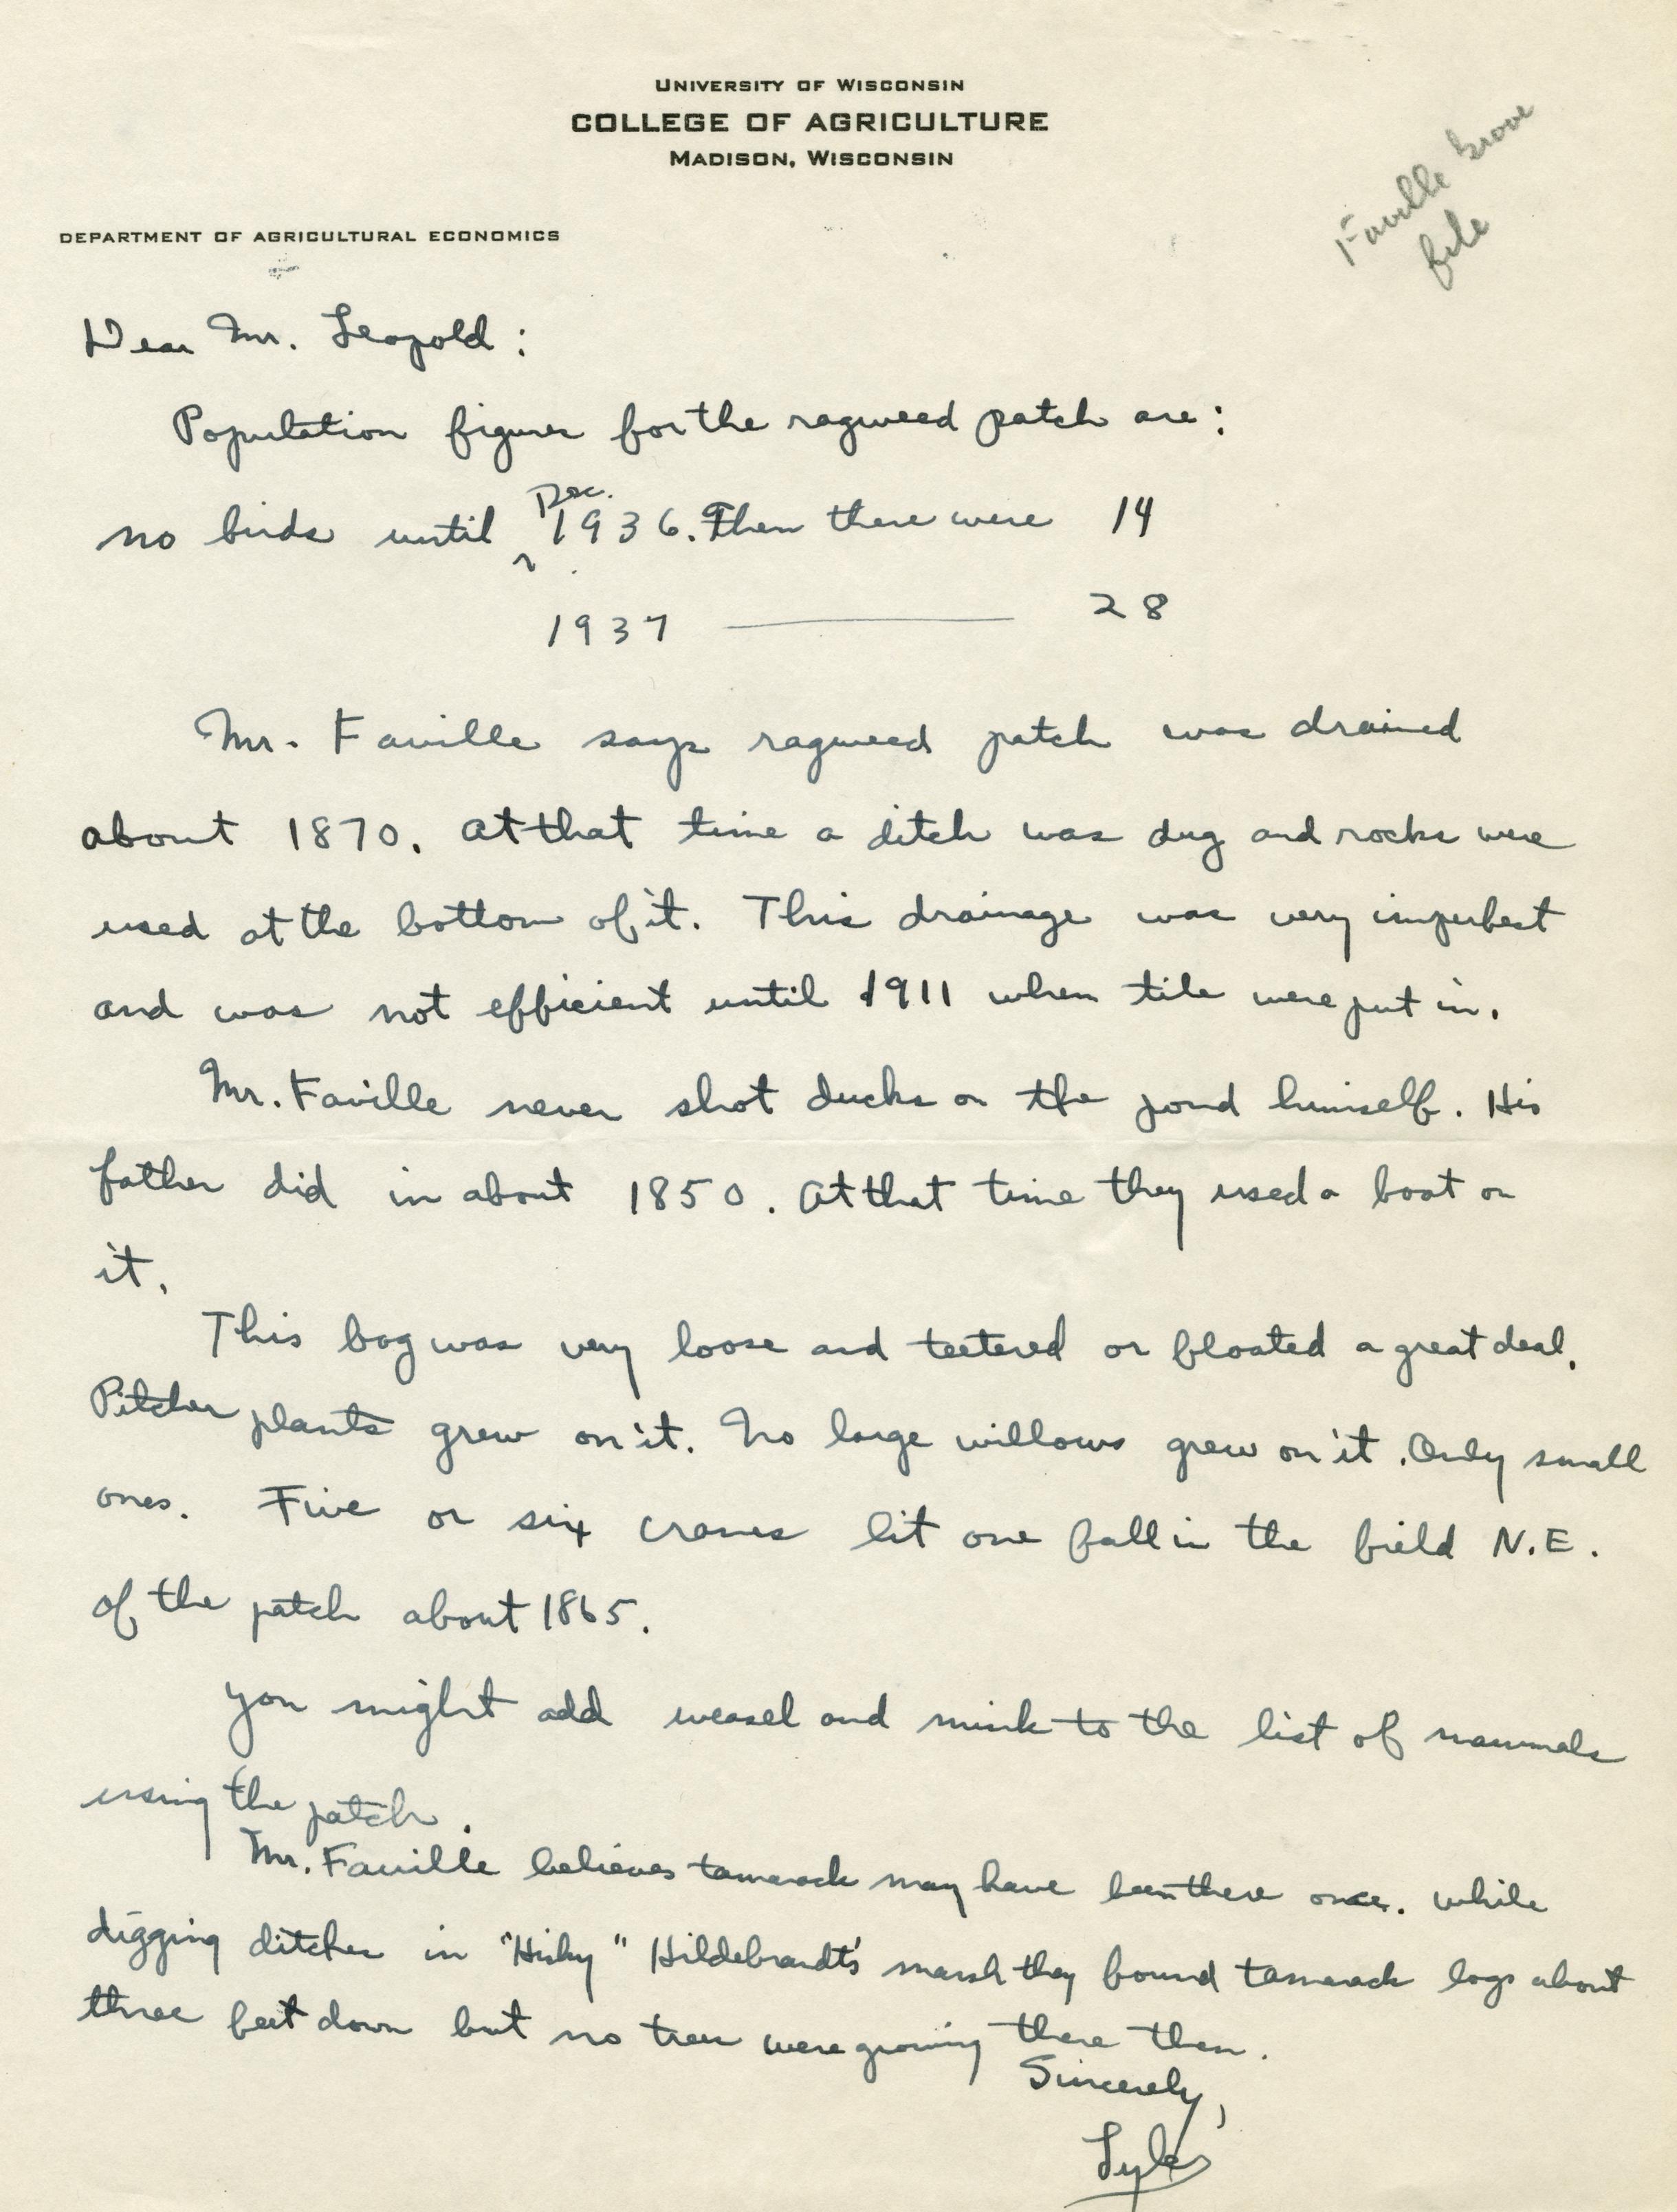 UNIVERSITY OF WISCONSIN
COLLEGE OF AGRICULTURE
MADISON, WISCONSIN
Faville Grove
file
DEPARTMENT OF AGRICULTURAL ECONOMICS
Dear Mr. Leopold:
Population figures for the ragweed patch are:
no birds until Dec. 1936. Then there were 14
1937 —— 28
Mr. Faville says ragweed patch was drained
about 1870. At that time a ditch was dug and rocks were
used at the bottom of it. This drainage was very imperfect
and was not efficient until 1911 when tile were put in.
Mr. Faville never shot ducks on the pond himself. His
father did in about 1850. At that time they used a boat on
it.
This bog was very loose and teetered or floated a great deal.
Pitcher plants grew on it. No large willows grew on it. Only small
ones. Five or six cranes lit one fall in the field N.E.
of the patch about 1865.
You might add weasel and mink to the list of mammals
using the patch.
Mr. Faville believes tamarack may have been there once. While
digging ditches in "Hisky" Hildebrandt's marsh they found tamarack logs about
three feet down but no trees were growing there then.
Sincerely,
Lyle